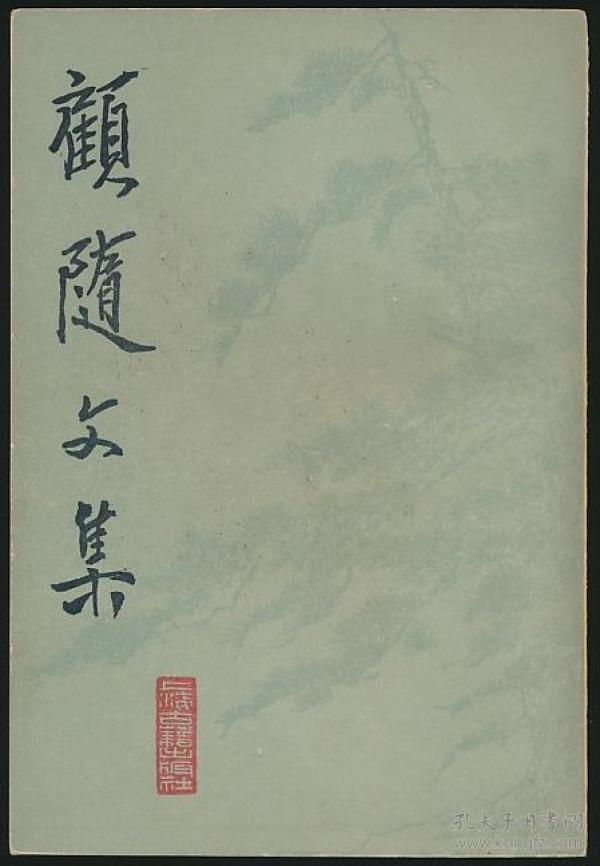 顧隨文集
上海古籍出版社
孔夫子旧书网
www.kongfz.com